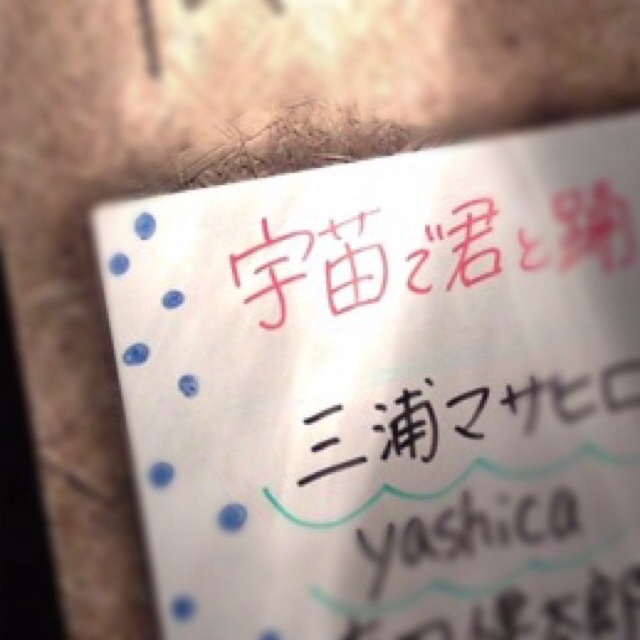 宇苗で君と踊
三浦マサヒロ
yashica
太郎